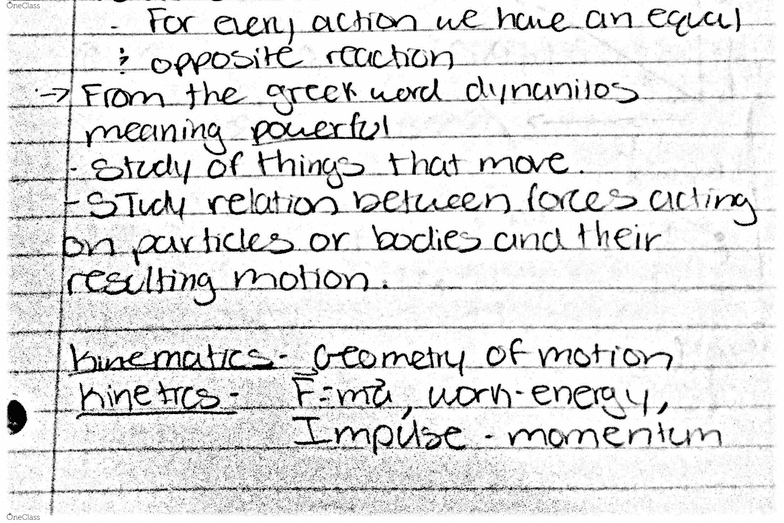 OneClass
- For every action we have an equal
& opposite reaction
→ From the greek word dynanilos
meaning powerful
- Study of things that move.
- Study relation between forces acting
on particles or bodies and their
resulting motion.
Kinematics - Geometry of motion
Kinetics - F⃗=ma⃗, work-energy,
Impulse - momentum
OneClass